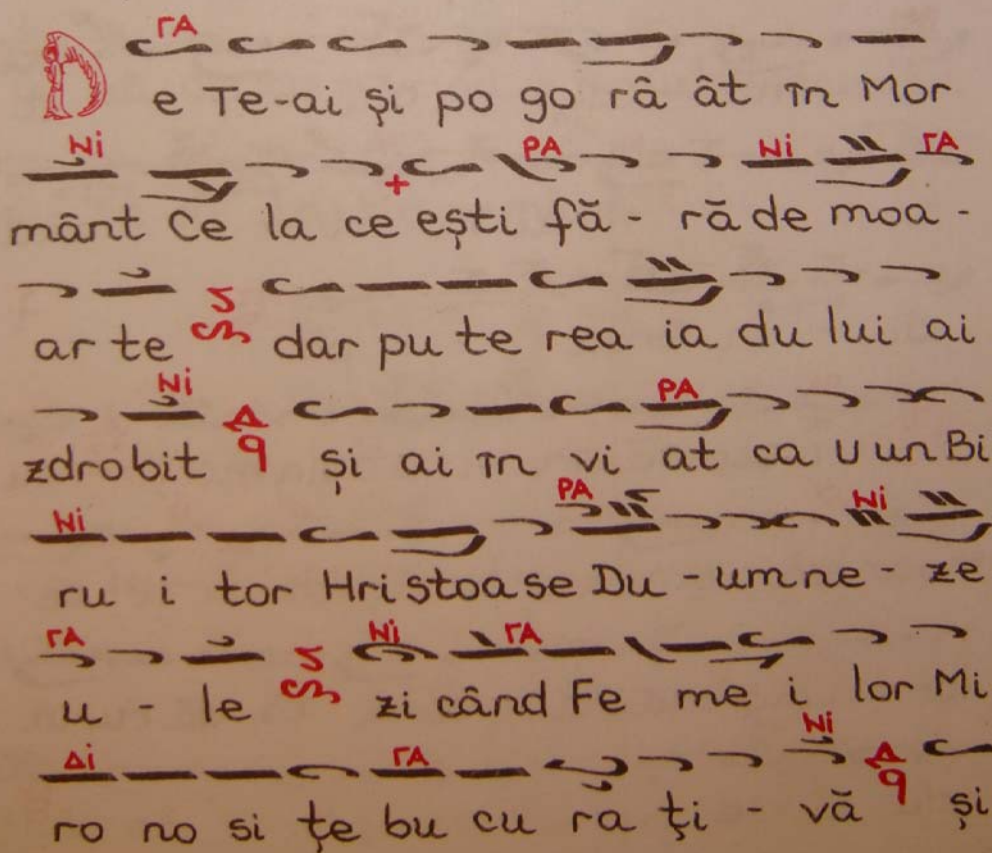 ГА
De Te-ai și po go râ ât în Mor
Ni PA Ni ГА
mânt Ce la ce ești fă - ră de moa -
ar te dar pu te rea ia du lui ai
Ni PA
zdrobit Δq și ai în vi at ca U un Bi
Ni PA Ni
ru i tor Hri stoa se Du - um ne - ze
ГА Ni ГА
u - le zi când Fe me i lor Mi
Δi ГА Ni
ro no si țe bu cu ra ți - vă Δq și